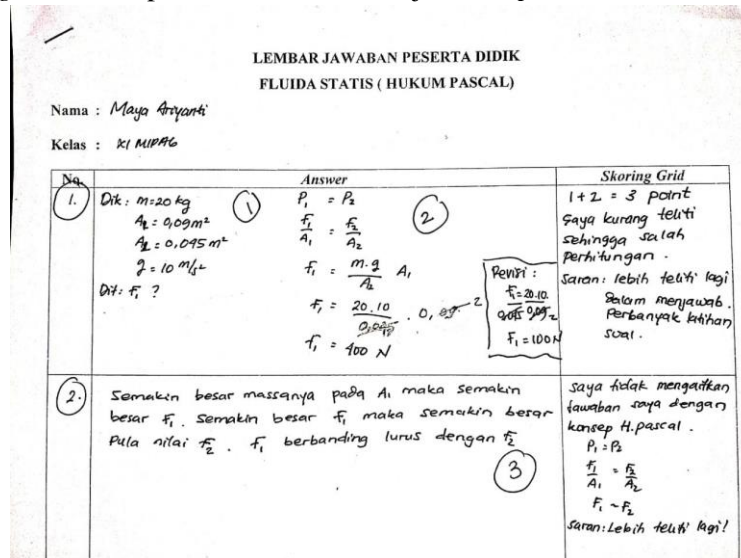 LEMBAR JAWABAN PESERTA DIDIK
FLUIDA STATIS ( HUKUM PASCAL)
Nama : Maya Ariyanti
Kelas : XI MIPA6
No. Answer Skoring Grid
1.
Dik: m=20 kg
A₁ = 0,09m²
A₂ = 0,045 m²
g = 10 m/s²
Dit: F₁ ?
1
P₁ = P₂
F₁/A₁ = F₂/A₂
F₁ = m.g/A₂ A₁
F₁ = 20.10/0,045 . 0,09
F₁ = 400 N
2
Revisi :
F₁ = 20.10.
F₁ = 100N
1+2 = 3 point
saya kurang teliti
sehingga salah
perhitungan .
Saran: lebih teliti lagi
dalam menjawab.
Perbanyak latihan
soal .
2.
Semakin besar massanya pada A₁ maka semakin
besar F₁. Semakin besar F₁ maka semakin besar
Pula nilai F₂ . F₁ berbanding lurus dengan F₂
3
saya tidak mengaitkan
jawaban saya dengan
konsep H.pascal .
P₁ = P₂
F₁/A₁ = F₂/A₂
F₁ ~ F₂
Saran: Lebih teliti lagi!